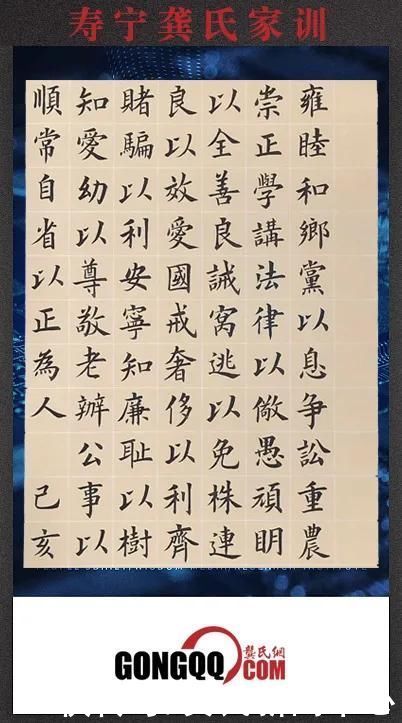 寿宁龚氏家训
雍睦和鄉黨以息争訟重農
崇正學講法律以儆愚頑明
以全善良誡窩逃以免株連
良以效愛國戒奢侈以利齊
賭騙以利安寧知廉耻以樹
知愛幼以尊敬老辦公事以
順常自省以正為人 己亥
龔氏網
GONGQQ.COM